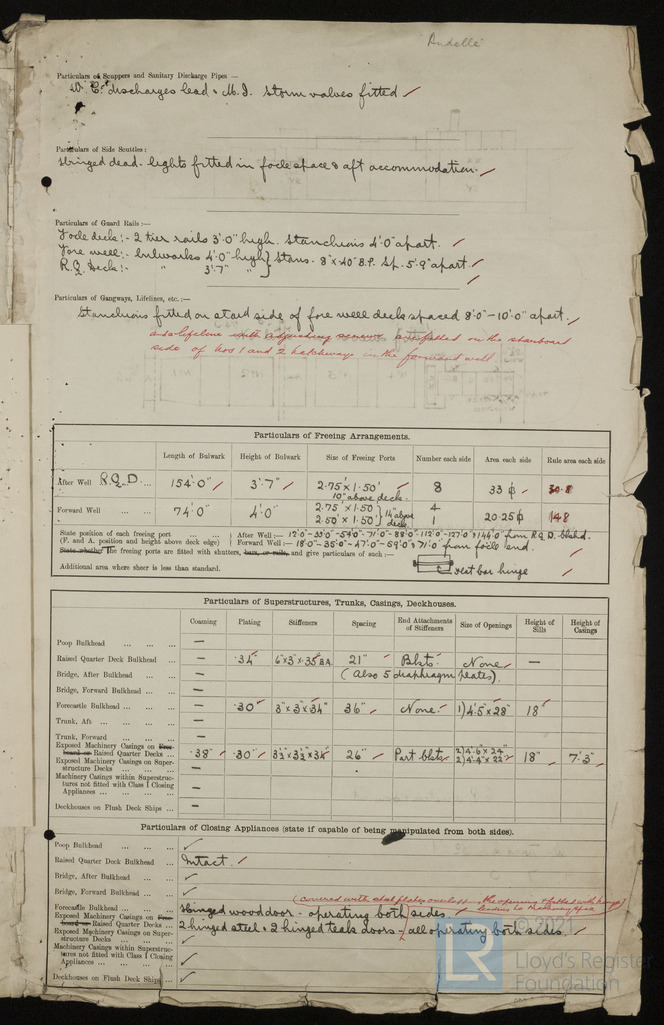 "Andelle"
Particulars of Scuppers and Sanitary Discharge Pipes —
W.C. discharges lead & M.I. storm valves fitted
Particulars of Side Scuttles :
Hinged dead-lights fitted in focle space & aft accommodation.
Particulars of Guard Rails :—
Focle deck:- 2 tier rails 3'.0" high. Stanchions 4'.0" apart.
Fore well:- bulwarks 4'.0" high } Stans. 8"x.40" B.P. Sp. 5'.9" apart
R.Q. Deck:- " 3'.7" "
Particulars of Gangways, Lifelines, etc. :—
Stanchions fitted on starb side of fore well deck spaced 8'.0" - 10'.0" apart.
and a lifeline with adjusting screws are fitted on the starboard
side of Nos 1 and 2 hatchways in the forward well.
Particulars of Freeing Arrangements.
Length of Bulwark Height of Bulwark Size of Freeing Ports Number each side Area each side Rule area each side
After Well R.Q.D. ... 154'.0" 3'.7" 2.75' x 1.50' 8 33
10" above deck.
Forward Well ... 74'.0" 4'.0" 2.75' x 1.50' } 14" above deck 4 20.25 14.8
2.50' x 1.50' 1
State position of each freeing port ... ... { After Well :— 12'.0" - 33'.0" - 54'.0" - 71'.0" - 88'.0" - 112'.0" - 127'.0" & 144'.0" from R.Q.D. blkhd.
(F. and A. position and height above deck edge) { Forward Well :— 18'.0" - 35'.0" - 47'.0" - 59'.0" & 71'.0" from focle end.
State whether the freeing ports are fitted with shutters, bars, or rails, and give particulars of such :—
flat bar hinge
Additional area where sheer is less than standard.
Particulars of Superstructures, Trunks, Casings, Deckhouses.
Coaming Plating Stiffeners Spacing End Attachments of Stiffeners Size of Openings Height of Sills Height of Casings
Poop Bulkhead ... ... ... —
Raised Quarter Deck Bulkhead ... — .34" 6"x3"x.35 B.A. 21" Bkts. None —
Bridge, After Bulkhead ... ... — (Also 5 diaphragm plates).
Bridge, Forward Bulkhead ... —
Forecastle Bulkhead ... ... — .30" 3"x3"x.34" 36" None. 1) 4'.5"x28" 18"
Trunk, Aft ... ... ... —
Trunk, Forward ... ... ... —
Exposed Machinery Casings on Freeboard or Raised Quarter Decks ... .38" .30" 3½"x3½"x.34" 26" Part bkts 2) 4'.6"x24" 18" 7'.3"
2) 4'.4"x22"
Exposed Machinery Casings on Superstructure Decks ... ... —
Machinery Casings within Superstructures not fitted with Class I Closing Appliances ... ... ... —
Deckhouses on Flush Deck Ships ... —
Particulars of Closing Appliances (state if capable of being manipulated from both sides).
Poop Bulkhead ... ... ...
Raised Quarter Deck Bulkhead ... Intact.
Bridge, After Bulkhead ... ...
Bridge, Forward Bulkhead ...
Forecastle Bulkhead ... ... Hinged wood door - operating both sides.
Exposed Machinery Casings on Freeboard or Raised Quarter Decks ... 2 hinged steel & 2 hinged teak doors - all operating both sides.
Exposed Machinery Casings on Superstructure Decks ... ...
Machinery Casings within Superstructures not fitted with Class I Closing Appliances ... ...
Deckhouses on Flush Deck Ships ...
LR
© 2021
Lloyd's Register
Foundation